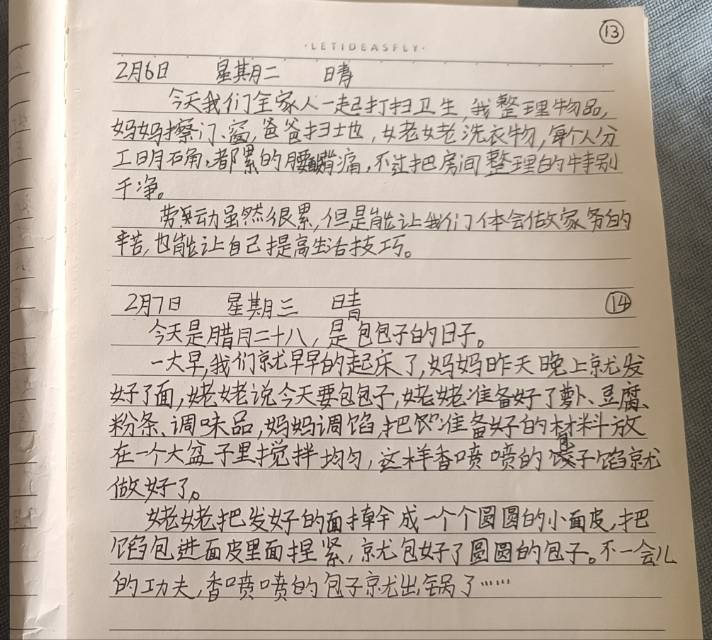 ·LETIDEASFLY·
⑬
2月6日 星期二 晴
今天我们全家人一起打扫卫生,我整理物品,
妈妈擦门、窗,爸爸扫地,姥姥洗衣物,每个人分
工明确,都累的腰酸背痛,不过把房间整理的特别
干净。
劳动虽然很累,但是能让我们体会做家务的
辛苦,也能让自己提高生活技巧。
2月7日 星期三 晴 ⑭
今天是腊月二十八,是包包子的日子。
一大早,我们就早早的起床了,妈妈昨天晚上就发
好了面,姥姥说今天要包包子,姥姥准备好了萝卜、豆腐、
粉条、调味品,妈妈调馅,把准备好的材料放
在一个大盆子里搅拌均匀,这样香喷喷的子馅就
做好了。
姥姥把发好的面擀成一个个圆圆的小面皮,把
馅包进面皮里面捏紧,就包好了圆圆的包子。不一会儿
的功夫,香喷喷的包子就出锅了……